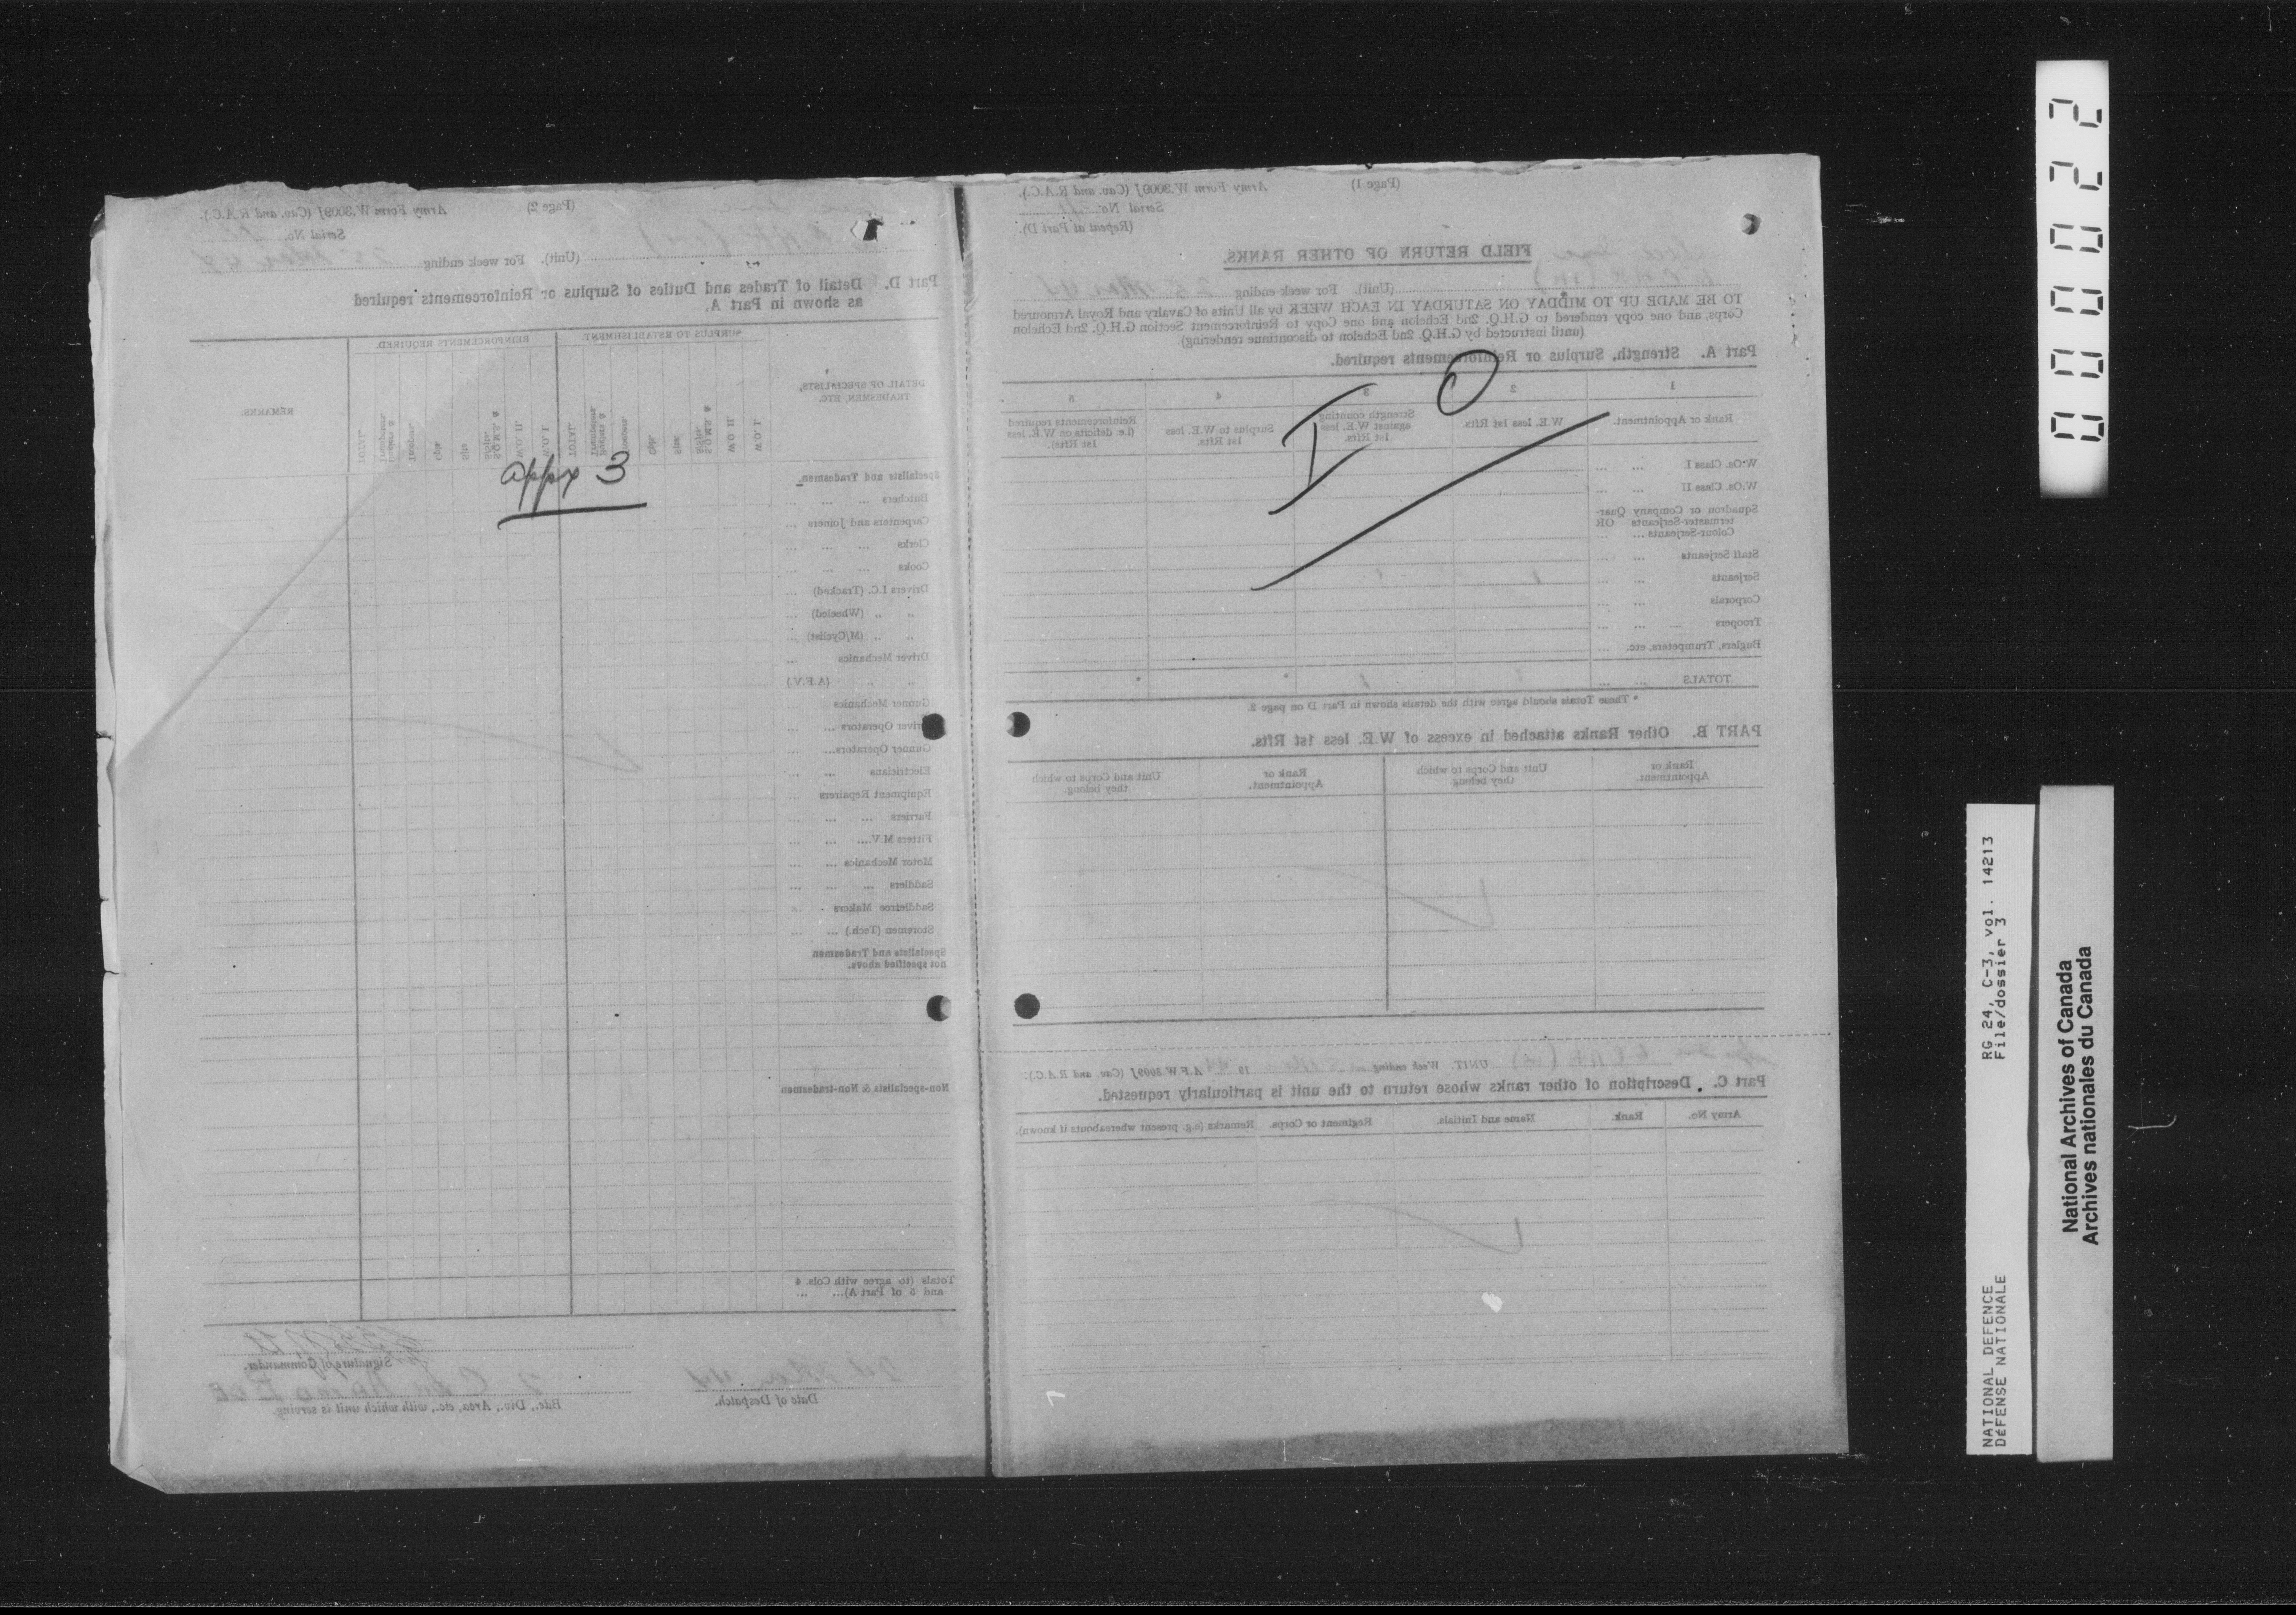 (Page 2) Army Form W.3009J (Cav. and R.A.C.).
Serial No.
(Unit). For week ending
Part D. Detail of Trades and Duties of Surplus or Reinforcements required
as shown in Part A.
DETAIL OF SPECIALISTS,
TRADESMEN, ETC.
SURPLUS TO ESTABLISHMENT.
REINFORCEMENTS REQUIRED.
REMARKS.
W.O. I.
W.O. II.
TOTAL.
W.O. I.
W.O. II.
TOTAL.
appx 3
Specialists and Tradesmen.
Butchers ... ... ...
Carpenters and Joiners ...
Clerks ... ... ...
Cooks ... ... ...
Drivers I.C. (Tracked) ...
„ „ (Wheeled) ...
„ „ (M/Cyclist) ...
Driver Mechanics ...
„ „ (A.F.V.)
Gunner Mechanics
Driver Operators ... ...
Gunner Operators... ...
Electricians ... ...
Equipment Repairers ...
Farriers ... ... ...
Fitters M.V.... ... ...
Motor Mechanics ... ...
Saddlers ... ... ...
Saddletree Makers
Storemen (Tech.) ... ...
Specialists and Tradesmen
not specified above.
Non-specialists & Non-tradesmen
Totals (to agree with Cols. 4
and 5 of Part A)... ...
Signature of Commander.
Date of Despatch.
Bde., Div., Area, etc., with which unit is serving.
(Page 1) Army Form W.3009J (Cav. and R.A.C.).
Serial No.
(Repeat at Part D).
FIELD RETURN OF OTHER RANKS.
(Unit). For week ending
TO BE MADE UP TO MIDDAY ON SATURDAY IN EACH WEEK by all Units of Cavalry and Royal Armoured
Corps, and one copy rendered to G.H.Q. 2nd Echelon and one Copy to Reinforcement Section G.H.Q. 2nd Echelon
(until instructed by G.H.Q. 2nd Echelon to discontinue rendering).
Part A. Strength, Surplus or Reinforcements required.
IO
1 2 3 4 5
Rank or Appointment.
W.E. less 1st Rfts.
Strength counting
against W.E. less
1st Rfts.
Surplus to W.E. less
1st Rfts.
Reinforcements required
(i.e. deficits on W.E. less
1st Rfts).
W.Os. Class I ... ...
W.Os. Class II ... ...
Squadron or Company Quar-
termaster-Serjeants OR
Colour-Serjeants ... ...
Staff Serjeants ... ...
Serjeants ... ...
Corporals ... ...
Troopers ... ... ...
Buglers, Trumpeters, etc. ...
TOTALS ... ...
* These Totals should agree with the details shown in Part D on page 2.
PART B. Other Ranks attached in excess of W.E. less 1st Rfts.
Rank or
Appointment.
Unit and Corps to which
they belong.
Rank or
Appointment.
Unit and Corps to which
they belong.
UNIT. Week ending 19 A.F.W.3009J (Cav. and R.A.C.).
Part C. Description of other ranks whose return to the unit is particularly requested.
Army No. Rank. Name and Initials. Regiment or Corps. Remarks (e.g. present whereabouts if known).
000022
NATIONAL DEFENCE RG 24, C-3, vol. 14213
DÉFENSE NATIONALE File/dossier 3
National Archives of Canada
Archives nationales du Canada